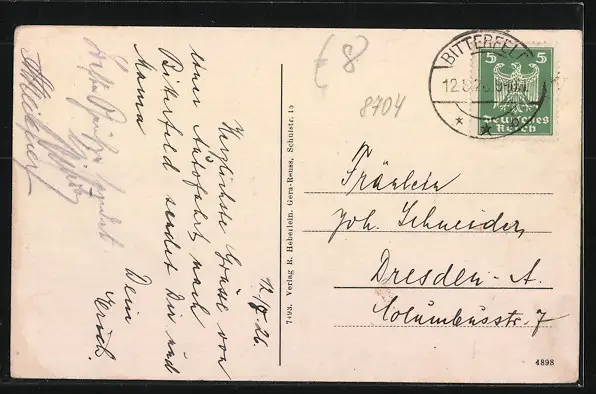 12/8.26.
Herzlichste Grüsse von
einer Autofahrt nach
Bitterfeld sendet Dir und
Mama
Dein
Erich.
7493. Verlag R. Heberlein, Gera-Reuss, Schulstr. 15
8
8704
BITTERFELD
5 5
Deutsches
Reich
Fräulein
Joh. Schneider
Dresden-A.
Columbusstr. 7
4898